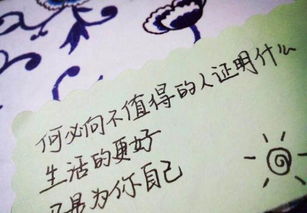 何必向不值得的人证明什么
生活的更好
只是为你自己